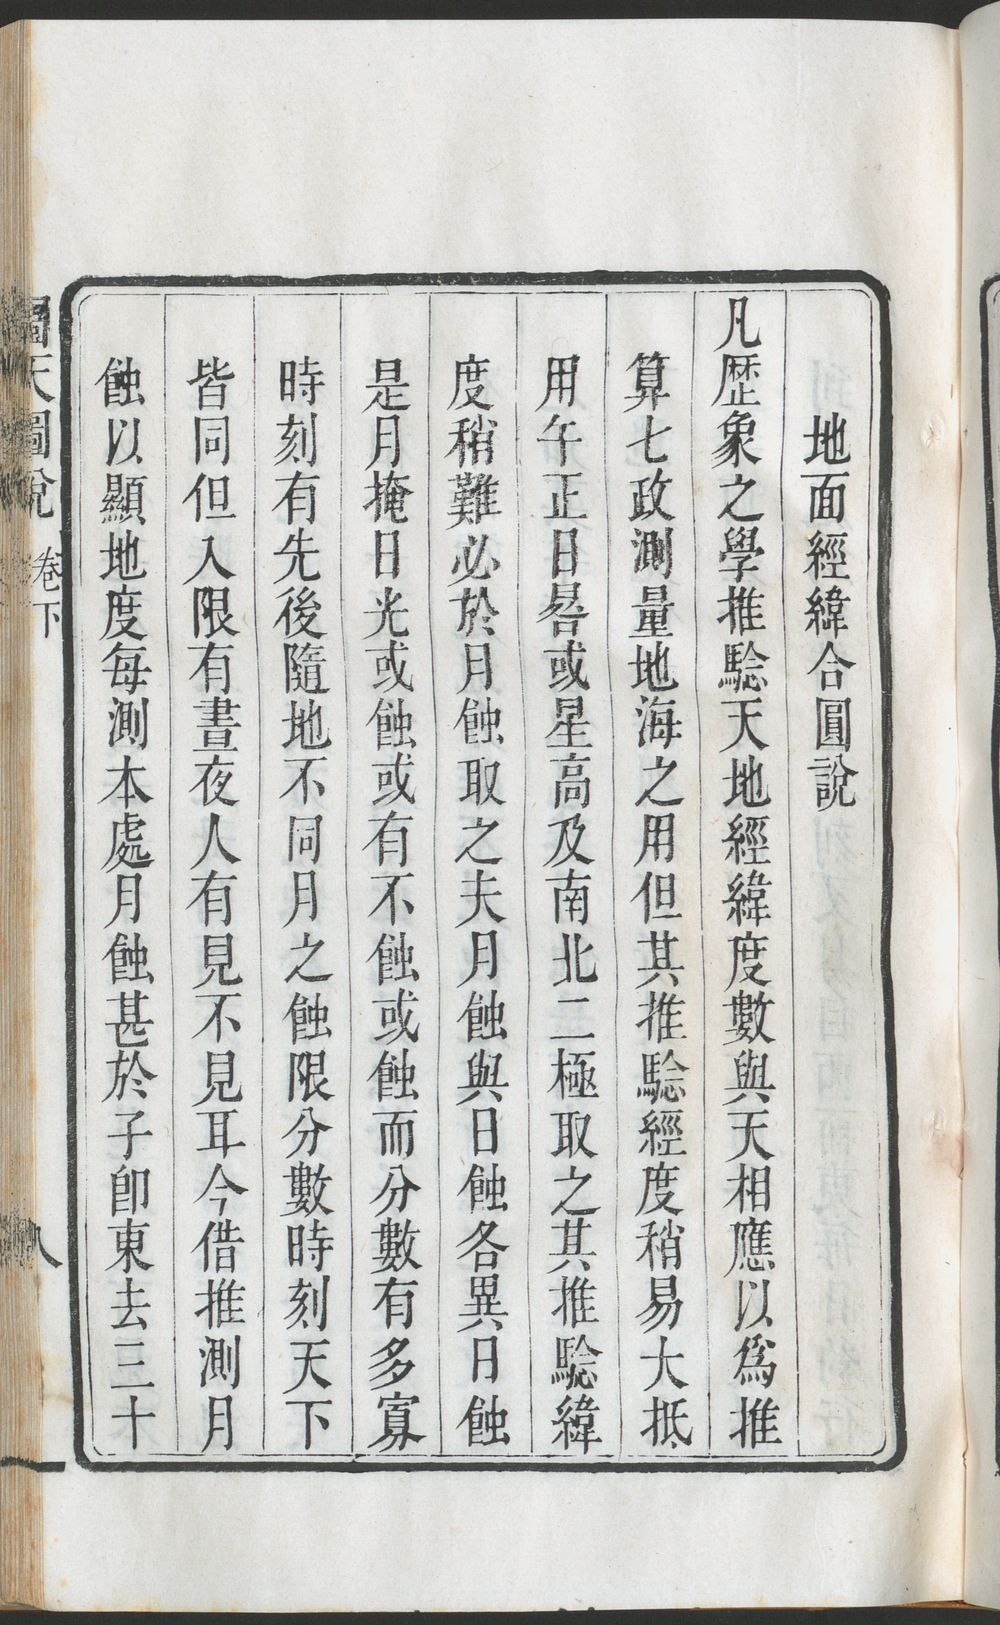 地面經緯合圓說
凡歷象之學推騐天地經緯度數與天相應以爲推
算七政測量地海之用但其推騐經度稍易大抵
用午正日晷或星高及南北二極取之其推騐緯
度稍難必於月蝕取之夫月蝕與日蝕各異日蝕
是月掩日光或蝕或有不蝕或蝕而分數有多寡
時刻有先後隨地不同月之蝕限分數時刻天下
皆同但入限有晝夜人有見不見耳今借推測月
蝕以顯地度每測本處月蝕甚於子卽東去三十
圜天圖說
卷下
八